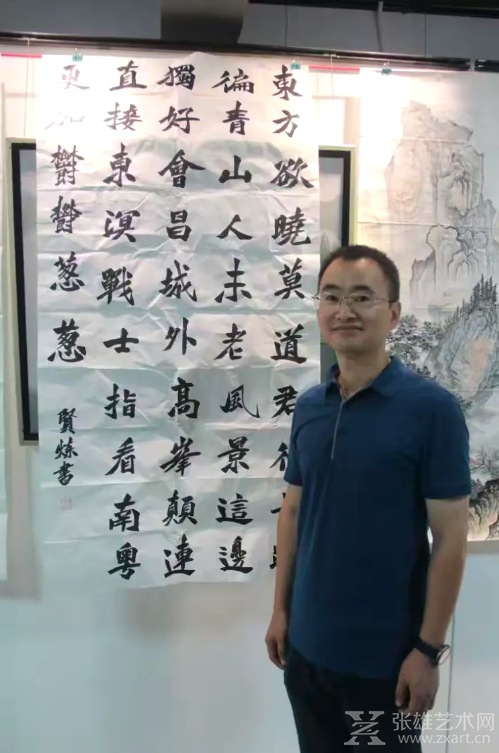 東方欲曉莫道君行
徧青山人未老風景這邊
獨好會昌城外高峯顛連
直接東溟戰士指看南粵
更加欝欝葱葱
賢書
张雄艺术网
www.zxart.cn